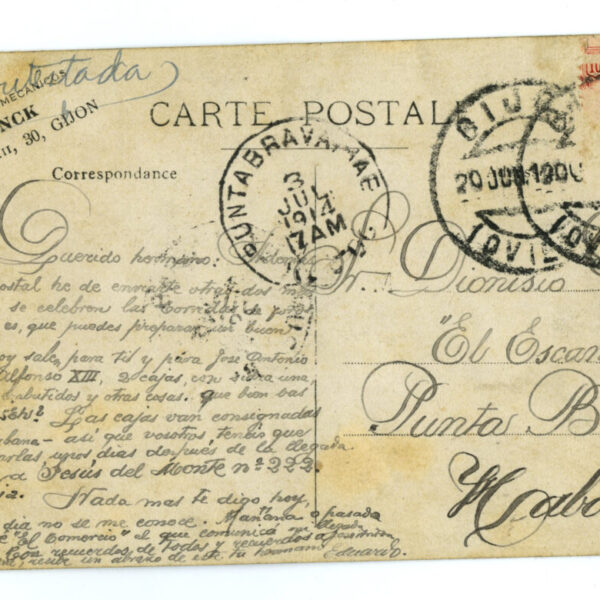 Contestada
MECANICOS
NCK
30, GIJON
CARTE POSTALE
Correspondance
PUNTABRAVA,HAE
3
JUL
1914
7AM
GIJON
20 JUN 190
(OVIE
Querido hermano: Además
postal he de enviarte otras dos
se celebren las Corridas de toros
es, que puedes preparar un buen
oy sale para tí y para José Antonio
Alfonso XIII, 2 cajas, con sidra una,
embutidos y otras cosas. que bien bas
Las cajas van consignadas
abana - así que vosotros tenéis que
arlas unos días después de la llegada
a Jesús del Monte nº 222.
Nada mas te digo hoy,
día no se me conoce. Mañana o pasado
"El Comercio" el que comunica mi llegada
Con recuerdos de todos y recuerdos a
recibe un abrazo de este tu hermano Eduardo.
Sr. Dionisio
"El Escan
Punta B
Haba
10